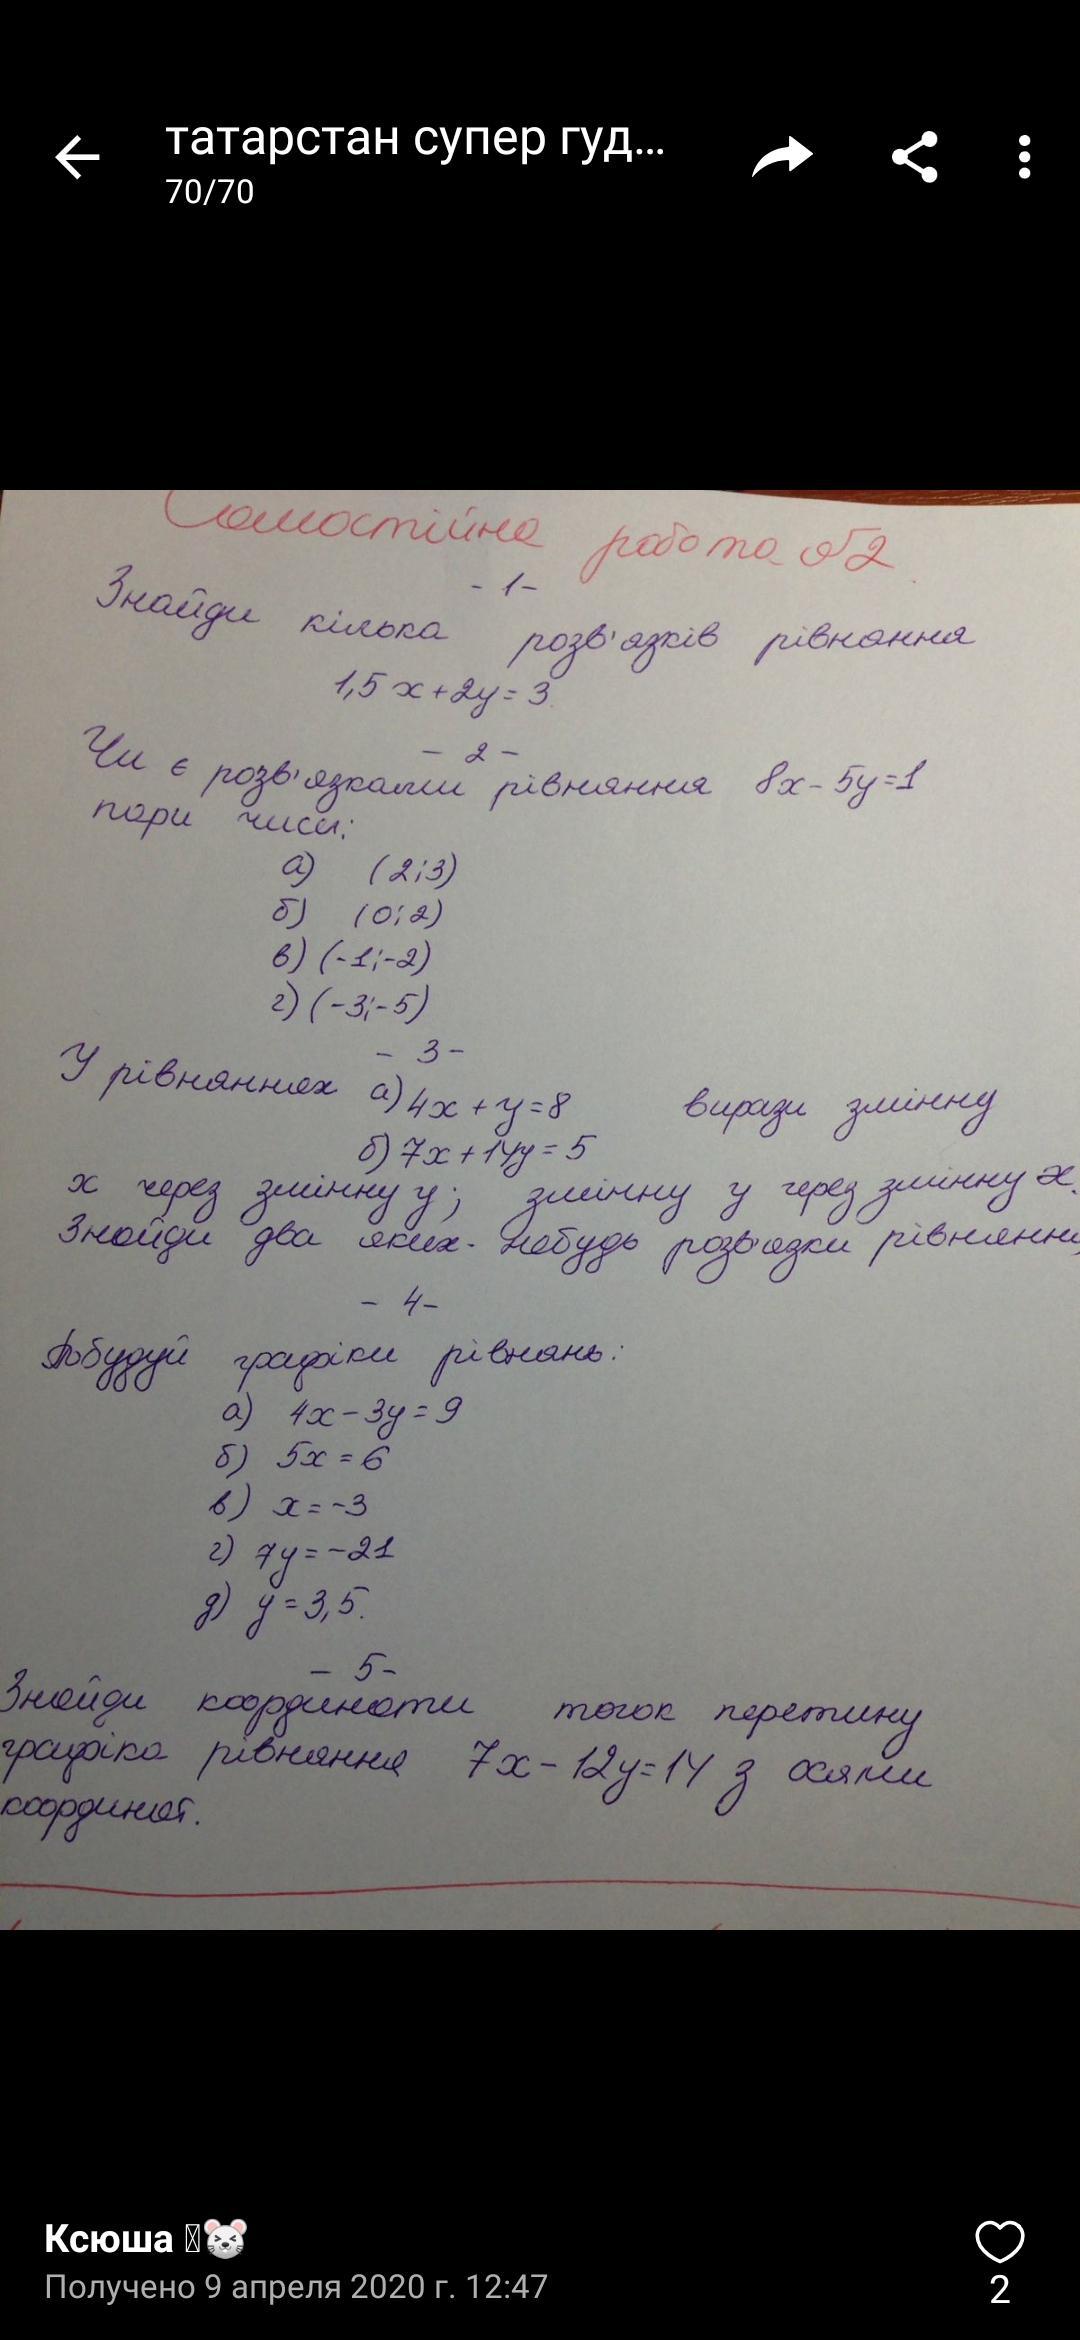 татарстан супер гуд...
70/70
Самостійна робота №2
- 1 -
Знайди кілька розв'язків рівняння
1,5x + 2y = 3.
- 2 -
Чи є розв'язками рівняння 8x - 5y = 1
пари чисел:
а) (2; 3)
б) (0; 2)
в) (-1; -2)
г) (-3; -5)
- 3 -
У рівняннях а) 4x + y = 8 вирази змінну
б) 7x + 14y = 5
x через змінну y; змінну y через змінну x.
Знайди два яких-небудь розв'язки рівняння
- 4 -
Побудуй графіки рівнянь:
а) 4x - 3y = 9
б) 5x = 6
в) x = -3
г) 7y = -21
д) y = 3,5.
- 5 -
Знайди координати точок перетину
графіка рівняння 7x - 12y = 14 з осями
координат.
Ксюша
Получено 9 апреля 2020 г. 12:47
2